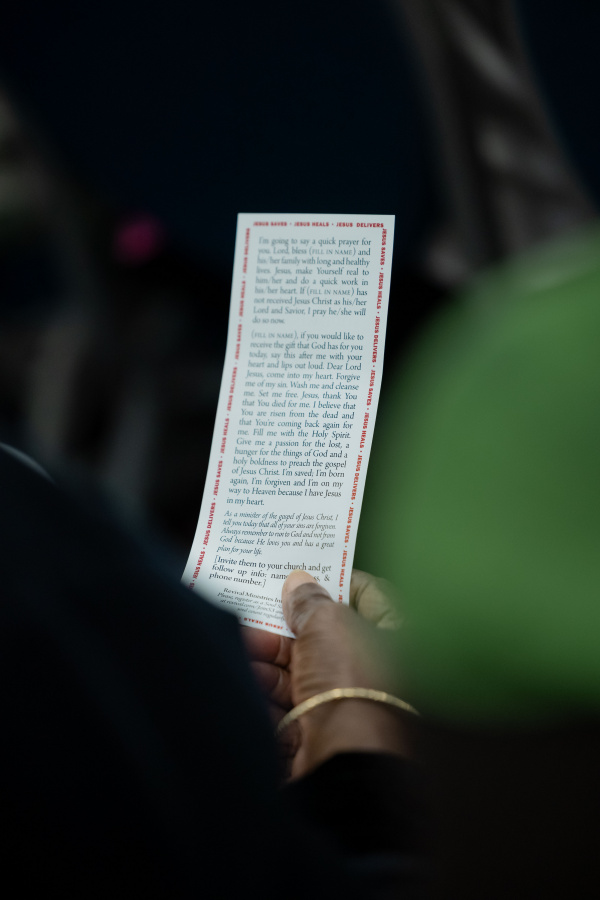 JESUS SAVES • JESUS HEALS • JESUS DELIVERS
I'm going to say a quick prayer for
you. Lord, bless (FILL IN NAME) and
his/her family with long and healthy
lives. Jesus, make Yourself real to
him/her and do a quick work in
his/her heart. If (FILL IN NAME) has
not received Jesus Christ as his/her
Lord and Savior, I pray he/she will
do so now.
(FILL IN NAME), if you would like to
receive the gift that God has for you
today, say this after me with your
heart and lips out loud. Dear Lord
Jesus, come into my heart. Forgive
me of my sin. Wash me and cleanse
me. Set me free. Jesus, thank You
that You died for me. I believe that
You are risen from the dead and
that You're coming back again for
me. Fill me with the Holy Spirit.
Give me a passion for the lost, a
hunger for the things of God and a
holy boldness to preach the gospel
of Jesus Christ. I'm saved; I'm born
again, I'm forgiven and I'm on my
way to Heaven because I have Jesus
in my heart.
As a minister of the gospel of Jesus Christ, I
tell you today that all of your sins are forgiven.
Always remember to run to God and not from
God because He loves you and has a great
plan for your life.
[Invite them to your church and get
follow up info: name, &
phone number.]
Revival Ministries
JESUS SAVES • JESUS HEALS • JESUS DELIVERS • JESUS SAVES • JESUS HEALS • JESUS DELIVERS
JESUS HEALS • JESUS DELIVERS • JESUS SAVES • JESUS HEALS • JESUS DELIVERS • JESUS SAVES • JESUS HEALS • JESUS DELIVERS
HEALS